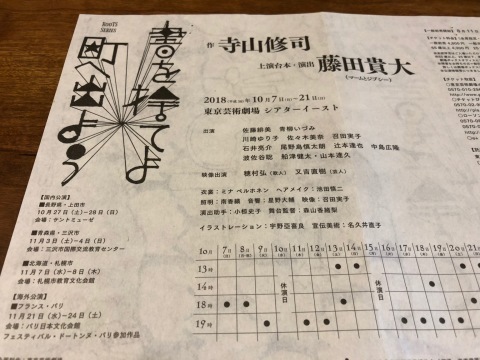 ROOTS SERIES
書を捨てよ
町へ出よう
作 寺山修司
上演台本・演出 藤田貴大
(マームとジプシー)
2018(平成30)年10月7日(日)〜21日(日)
東京芸術劇場 シアターイースト
出演 佐藤緋美 青柳いづみ
川崎ゆり子 佐々木美奈 召田実子
石井亮介 尾野島慎太朗 辻本達也 中島広隆
波佐谷聡 船津健太 山本達久
映像出演 穂村弘(歌人) 又吉直樹(芸人)
衣裳:ミナ ペルホネン ヘアメイク:池田慎二
照明:南香織 音響:星野大輔 映像:召田実子
演出助手:小椋史子 舞台監督:森山香緒梨
イラストレーション:宇野亞喜良 宣伝美術:名久井直子
【国内公演】
■長野県・上田市
10月27日(土)–28日(日)
会場:サントミューゼ
■青森県・三沢市
11月3日(土)–4日(日)
会場:三沢市国際交流教育センター
■北海道・札幌市
11月7日(水)–8日(木)
会場:札幌市教育文化会館
【海外公演】
■フランス・パリ
11月21日(水)–24日(土)
会場:パリ日本文化会館
フェスティバル・ドートンヌ・パリ参加作品
10月 7(日) 8(月) 9(火) 10(水) 11(木) 12(金) 13(土) 14(日) 15(月) 16(火) 17(水) 18(木) 19(金) 20(土) 21
13時 ● ● ● ●
14時 休演日 休演日
18時 ● ● ● ●
19時 ● ● ● ● ● ● ●